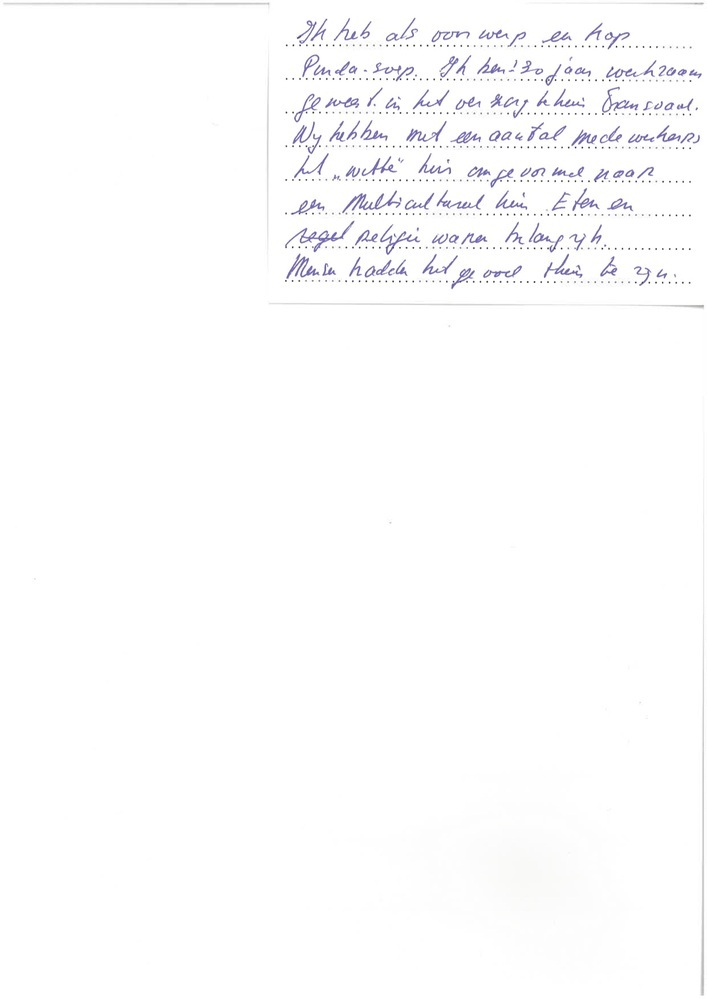 Ik heb als voorwerp en kop
Pinda-soep. Ik ben ± 30 jaar werkzaam
geweest in het verzorgtehuis Transvaal.
Wij hebben met een aantal medewerkers
het „witte" huis omgevormd naar
een Multicultureel huis Eten en
religie waren belangrijk.
Mensen hadden het gevoel thuis te zijn.